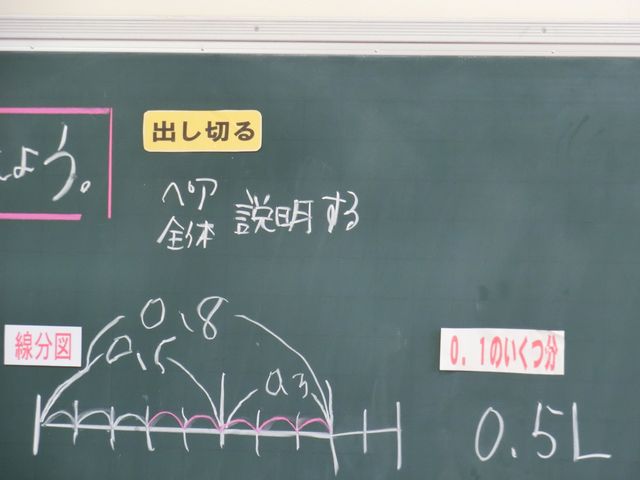 しょう。
出し切る
ペア
全体 説明する
線分図
0.8
0.5
0.3
0.1のいくつ分
0.5L